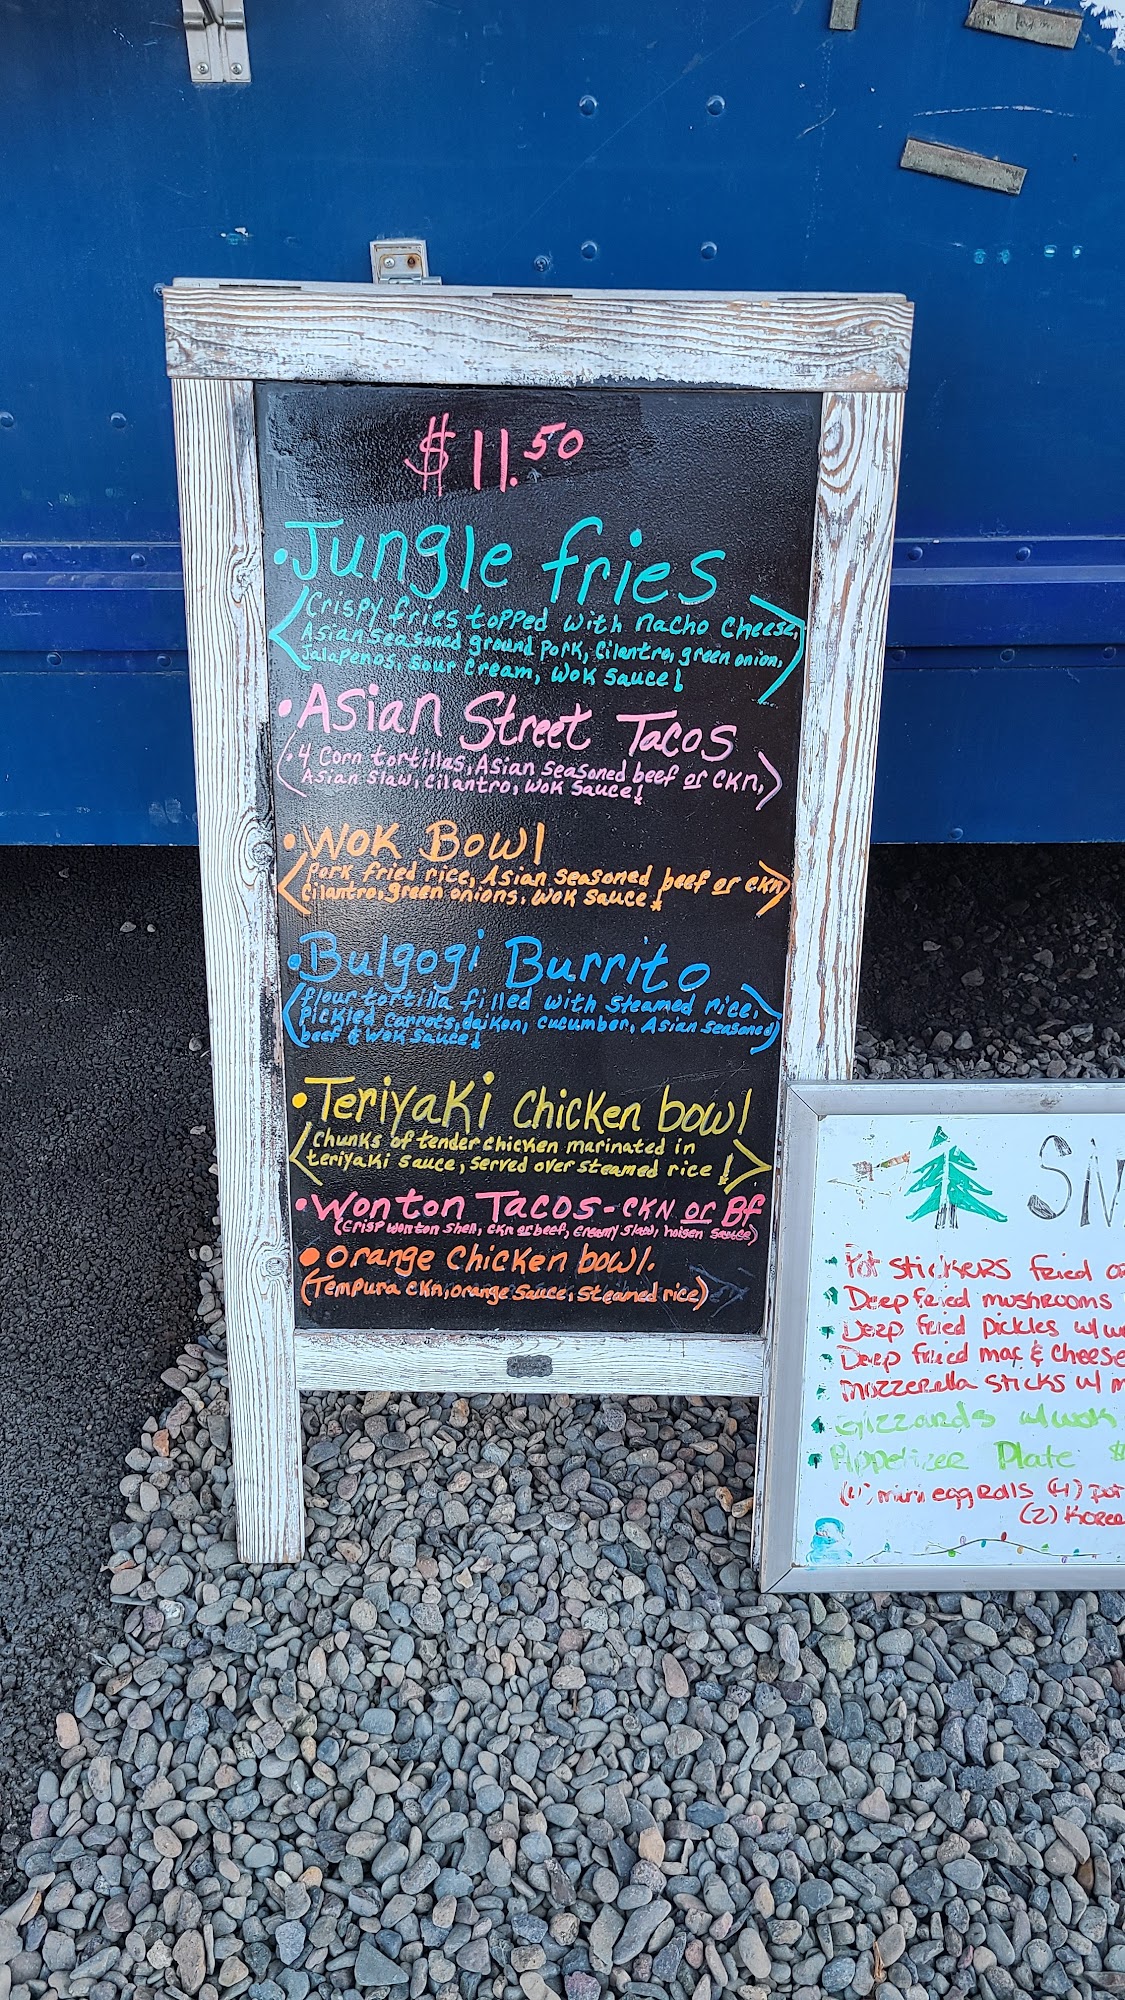 $11.50
• Jungle fries
Crispy fries topped with nacho cheese,
Asian seasoned ground pork, cilantro, green onion,
Jalapenos, sour cream, wok sauce!
• Asian Street Tacos
• 4 corn tortillas, Asian seasoned beef or ckn,
Asian slaw, cilantro, wok sauce!
• Wok Bowl
Pork fried rice, Asian seasoned beef or ckn
cilantro, green onions, wok sauce!
• Bulgogi Burrito
flour tortilla filled with steamed rice,
pickled carrots, daikon, cucumber, Asian seasoned
beef & wok sauce!
• Teriyaki Chicken bowl
Chunks of tender chicken marinated in
teriyaki sauce, served over steamed rice!
• Wonton Tacos - CKN or Bf
(crisp wonton shell, ckn or beef, creamy slaw, hoisen sauce)
• Orange Chicken bowl.
(Tempura ckn, orange sauce, steamed rice)
SN
Pot stickers fried o
Deep fried mushrooms
Deep fried pickles w/ w
Deep fried mac & cheese
Mozzerella sticks w/ m
Gizzards w/ wok
Appetizer Plate $
(4) mini egg rolls (4) pot
(2) Korea